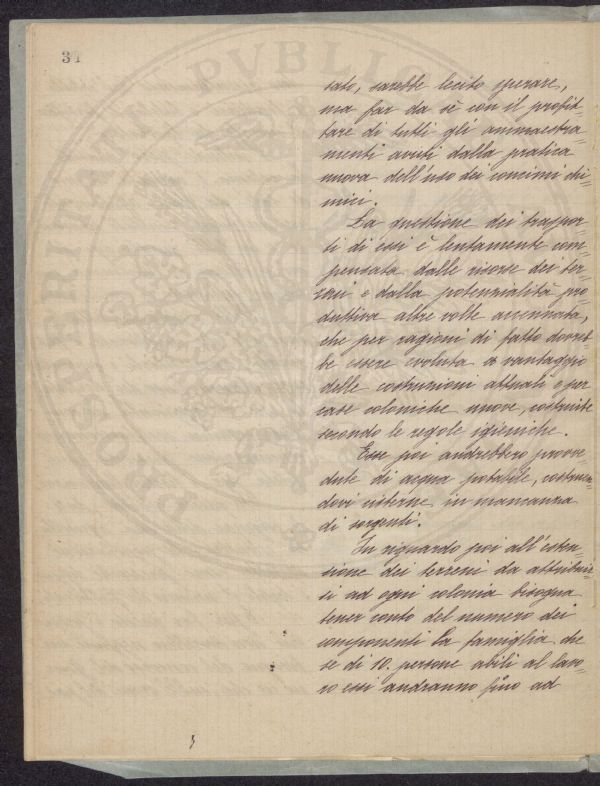 34
PROSPERITA PVBLICA
sato, sarebbe lecito sperare,
ma far da sè con il profit-
tare di tutti gli ammaestra-
menti avuti dalla pratica
nuova dell'uso dei concimi chi-
mici.
La questione dei traspor-
ti di essi è lentamente com-
pensata dalle risorse dei ter-
reni e dalla potenzialità pro-
duttiva altre volte accennata,
che per ragioni di fatto dovreb
be essere evoluta a vantaggio
delle costruzioni attuali e per
case coloniche nuove, costruite
secondo le regole igieniche.
Esse poi andrebbero provve-
dute di acqua potabile, costruen-
dovi cisterne in mancanza
di sorgenti.
In riguardo poi all'esten-
sione dei terreni da attribuir-
si ad ogni colonia bisogna
tener conto del numero dei
componenti la famiglia che
se di 10. persone abili al lavo-
ro essi andranno fino ad